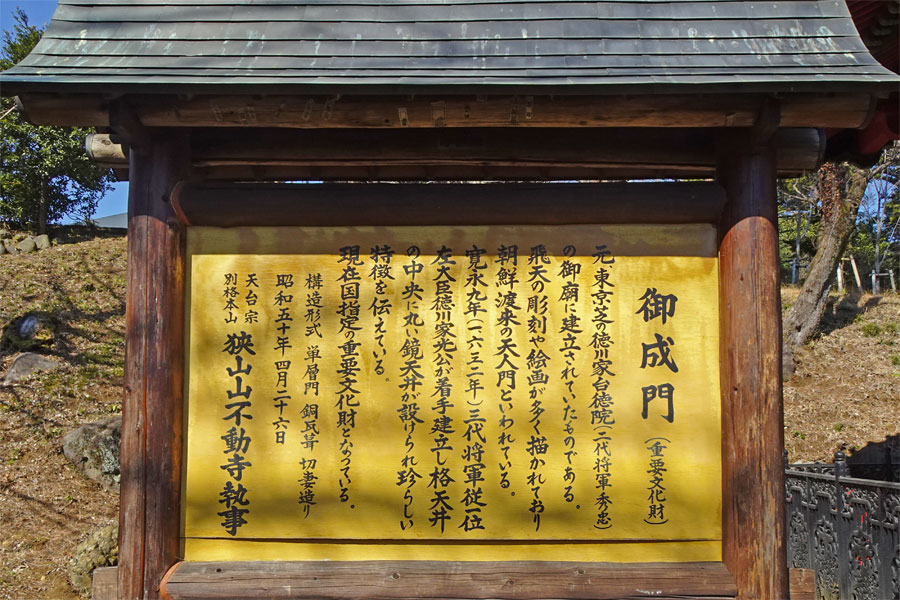 御成門（重要文化財）
元、東京芝の徳川家台徳院（二代将軍秀忠）
の御廟に建立されていたものである。
飛天の彫刻や絵画が多く描かれており
朝鮮渡来の天人門といわれている。
寛永九年（一六三二年）三代将軍従一位
左大臣徳川家光公が着手建立し格天井
の中央に丸い鏡天井が設けられ珍らしい
特徴を伝えている。
現在国指定の重要文化財となっている。
構造形式 単層門 銅瓦葺 切妻造り
昭和五十年四月二十六日
天台宗
別格本山
狭山山不動寺執事